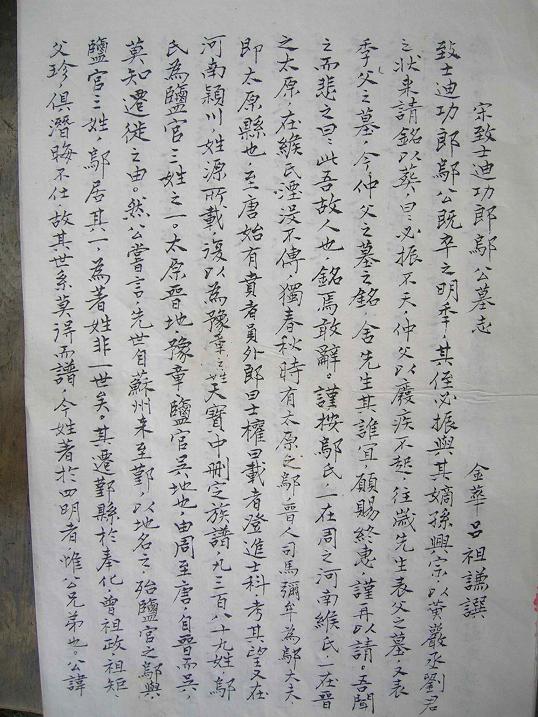 宗致士迪功郎鄔公墓志
金華呂祖謙譔
致士迪功郎鄔公既卒之明季，其侄必振與其嫡孫興宗，以黃巖丞劉君
之狀来請銘以葬，曰：必振不天，仲父以廢疾不起，往歲先生表父之墓，又表
季父之墓，今仲父之墓之銘，舍先生其誰宜，願賜終惠，謹再以請。吾聞
之而悲之曰：此吾故人也，銘焉敢辭。謹按鄔氏，一在周之河南緱氏，一在晉
之太原，在緱氏湮没不傳，獨春秋時有太原之鄔，晋人司馬彌牟為鄔大夫
即太原縣也。至唐始有賁者員外郎曰士權曰載者澄進士科考其望又在
河南潁川，姓源所載復以為豫章之姓天寶中刪定族譜，凡三百八十九姓，鄔
氏為鹽官三姓之一。太原晉地豫章，鹽官吴地也由周至唐，自晉而吴，
莫知遷徙之由。然公嘗言先世自蘇州来至鄞，以地名之，殆鹽官之鄔與
鹽官三姓，鄔居其一，為著姓非一世矣。其遷鄞縣於奉化，曾祖政，祖矩，
父珍，俱潛晦不仕故其世系莫得而譜，今姓著於四明者，惟公兄弟也。公諱